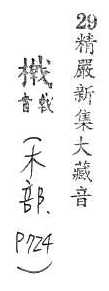 29精嚴新集大藏音
橶戟音(木部. P724)